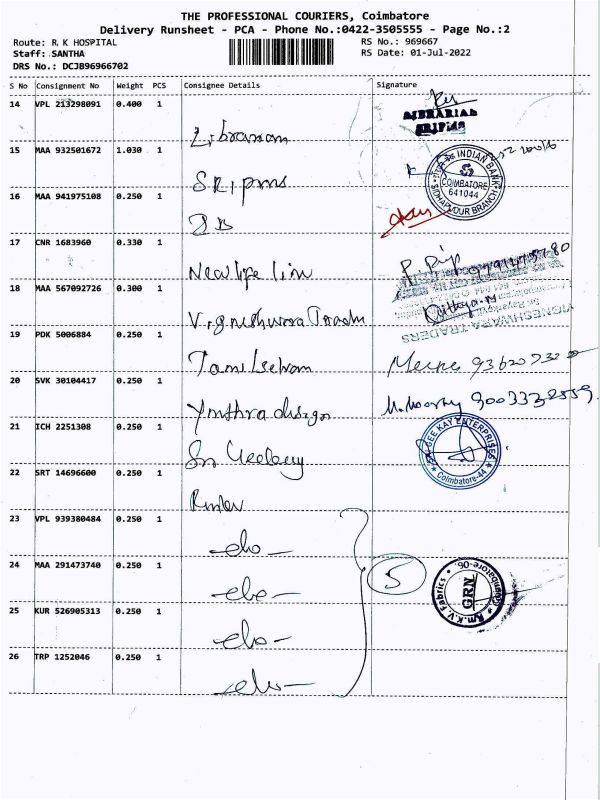 THE PROFESSIONAL COURIERS, Coimbatore
Delivery Runsheet - PCA - Phone No.:0422-3505555 - Page No.:2
Route: R K HOSPITAL RS No.: 969667
Staff: SANTHA RS Date: 01-Jul-2022
DRS No.: DCJB96966702
S No Consignment No Weight PCS Consignee Details Signature
14 VPL 213298091 0.400 1 Librarian LIBRARIAN SRIPMS
15 MAA 932501672 1.030 1 SRIPMS INDIAN BANK COIMBATORE 641044 SIDHAPUDUR BRANCH
16 MAA 941975108 0.250 1 IB
17 CNR 1683960 0.330 1 New life line
18 MAA 567092726 0.300 1 Vigneshwara Traders VIGNESHWARA TRADERS
19 PDK 5006884 0.250 1 Tamilselvam
20 SVK 30104417 0.250 1 design
21 ICH 2251308 0.250 1 Sri GEE KAY ENTERPRISES Coimbatore-44
22 SRT 14696600 0.250 1
23 VPL 939380484 0.250 1 -do-
24 MAA 291473740 0.250 1 -do- 5 Rm.K.V. Fabrics GRN Coimbatore-06.
25 KUR 526905313 0.250 1 -do-
26 TRP 1252046 0.250 1 -do-